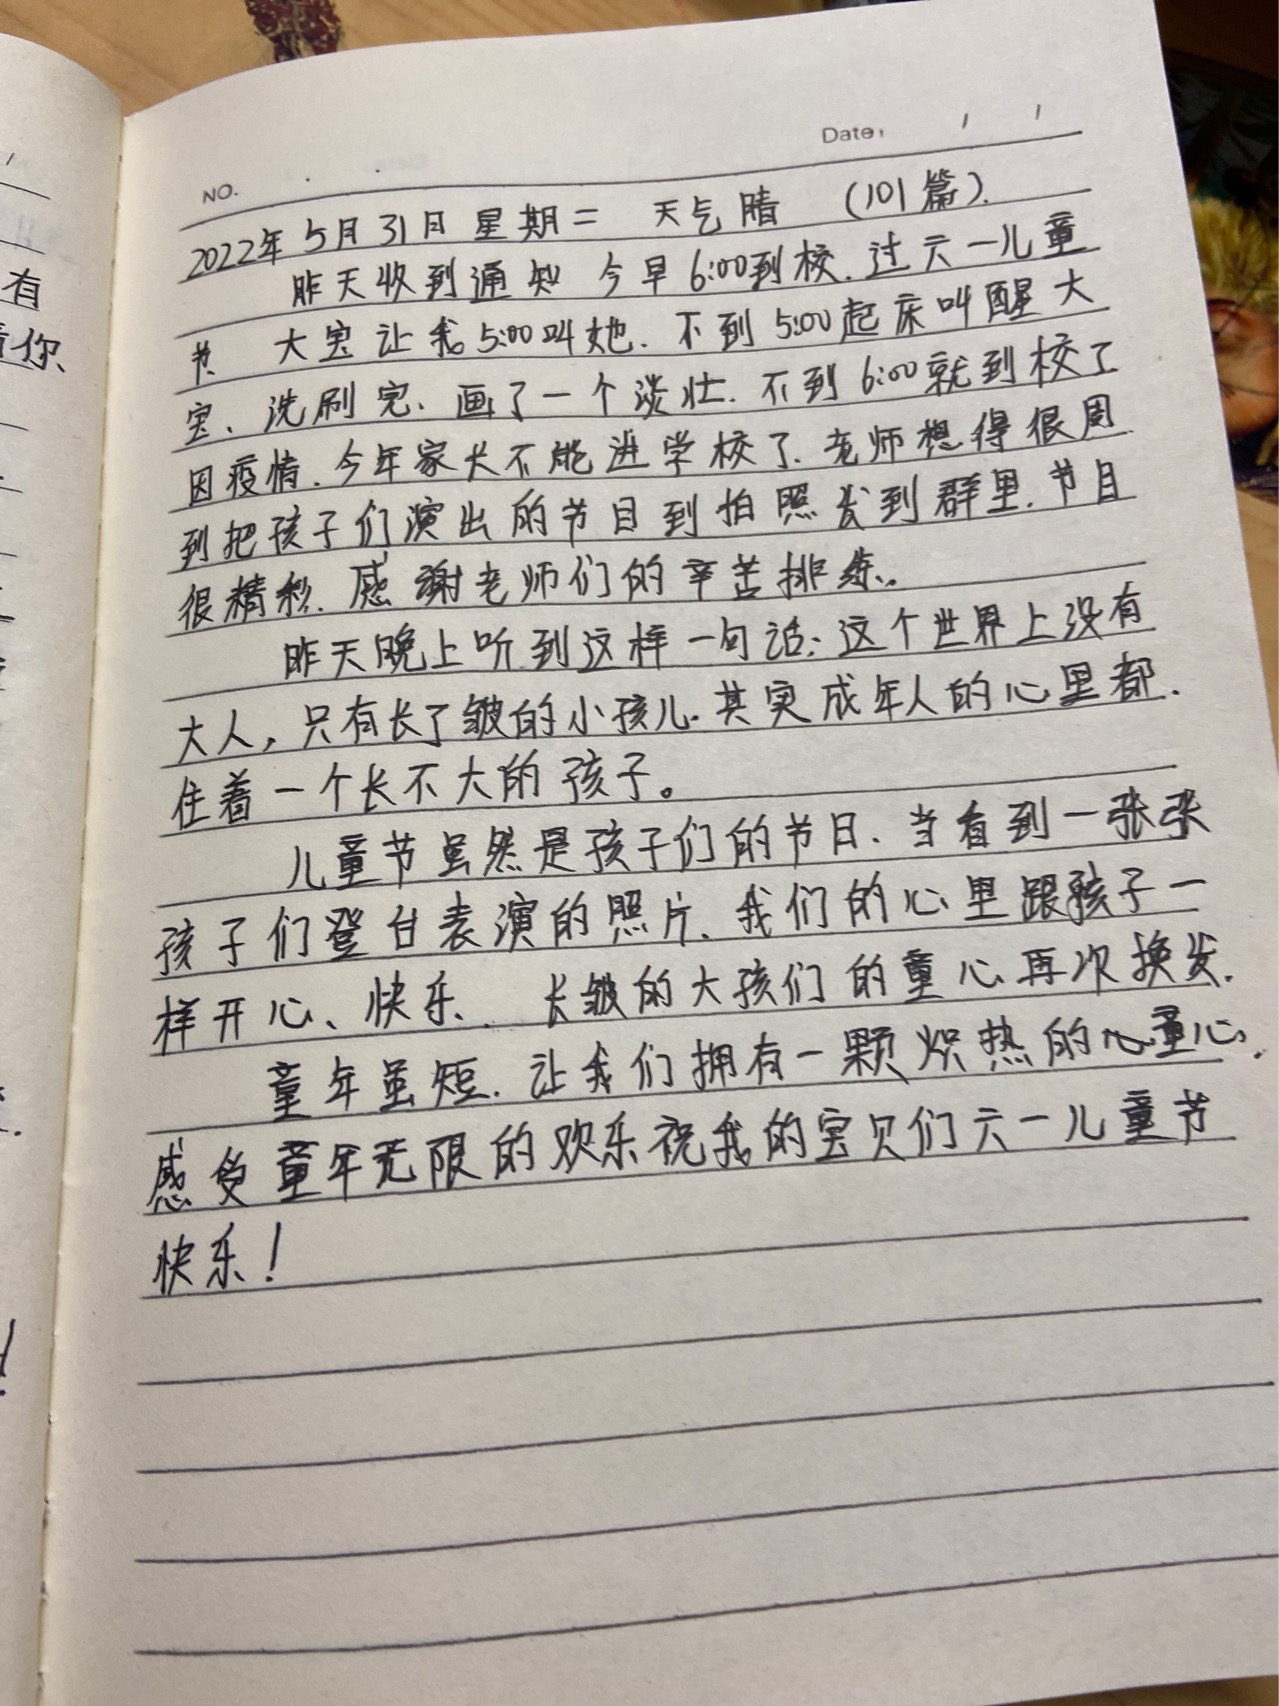 有
你、
NO.
Date:
2022年5月31日 星期二 天气晴 (101篇).
昨天收到通知 今早6:00到校.过六一儿童
节 大宝让我5:00叫她.不到5:00起床叫醒大
宝、洗刷完、画了一个淡壮.不到6:00就到校了
因疫情.今年家长不能进学校了.老师想得很周
到把孩子们演出的节目到拍照发到群里.节目
很精彩.感谢老师们的辛苦排练.
昨天晚上听到这样一句话:这个世界上没有
大人,只有长了皱的小孩儿.其实成年人的心里都.
住着一个长不大的孩子。
儿童节虽然是孩子们的节日.当看到一张张
孩子们登台表演的照片.我们的心里跟孩子一
样开心、快乐、 长皱的大孩们的童心再次换发.
童年虽短.让我们拥有一颗炽热的心童心.
感受童年无限的欢乐祝我的宝贝们六一儿童节
快乐!